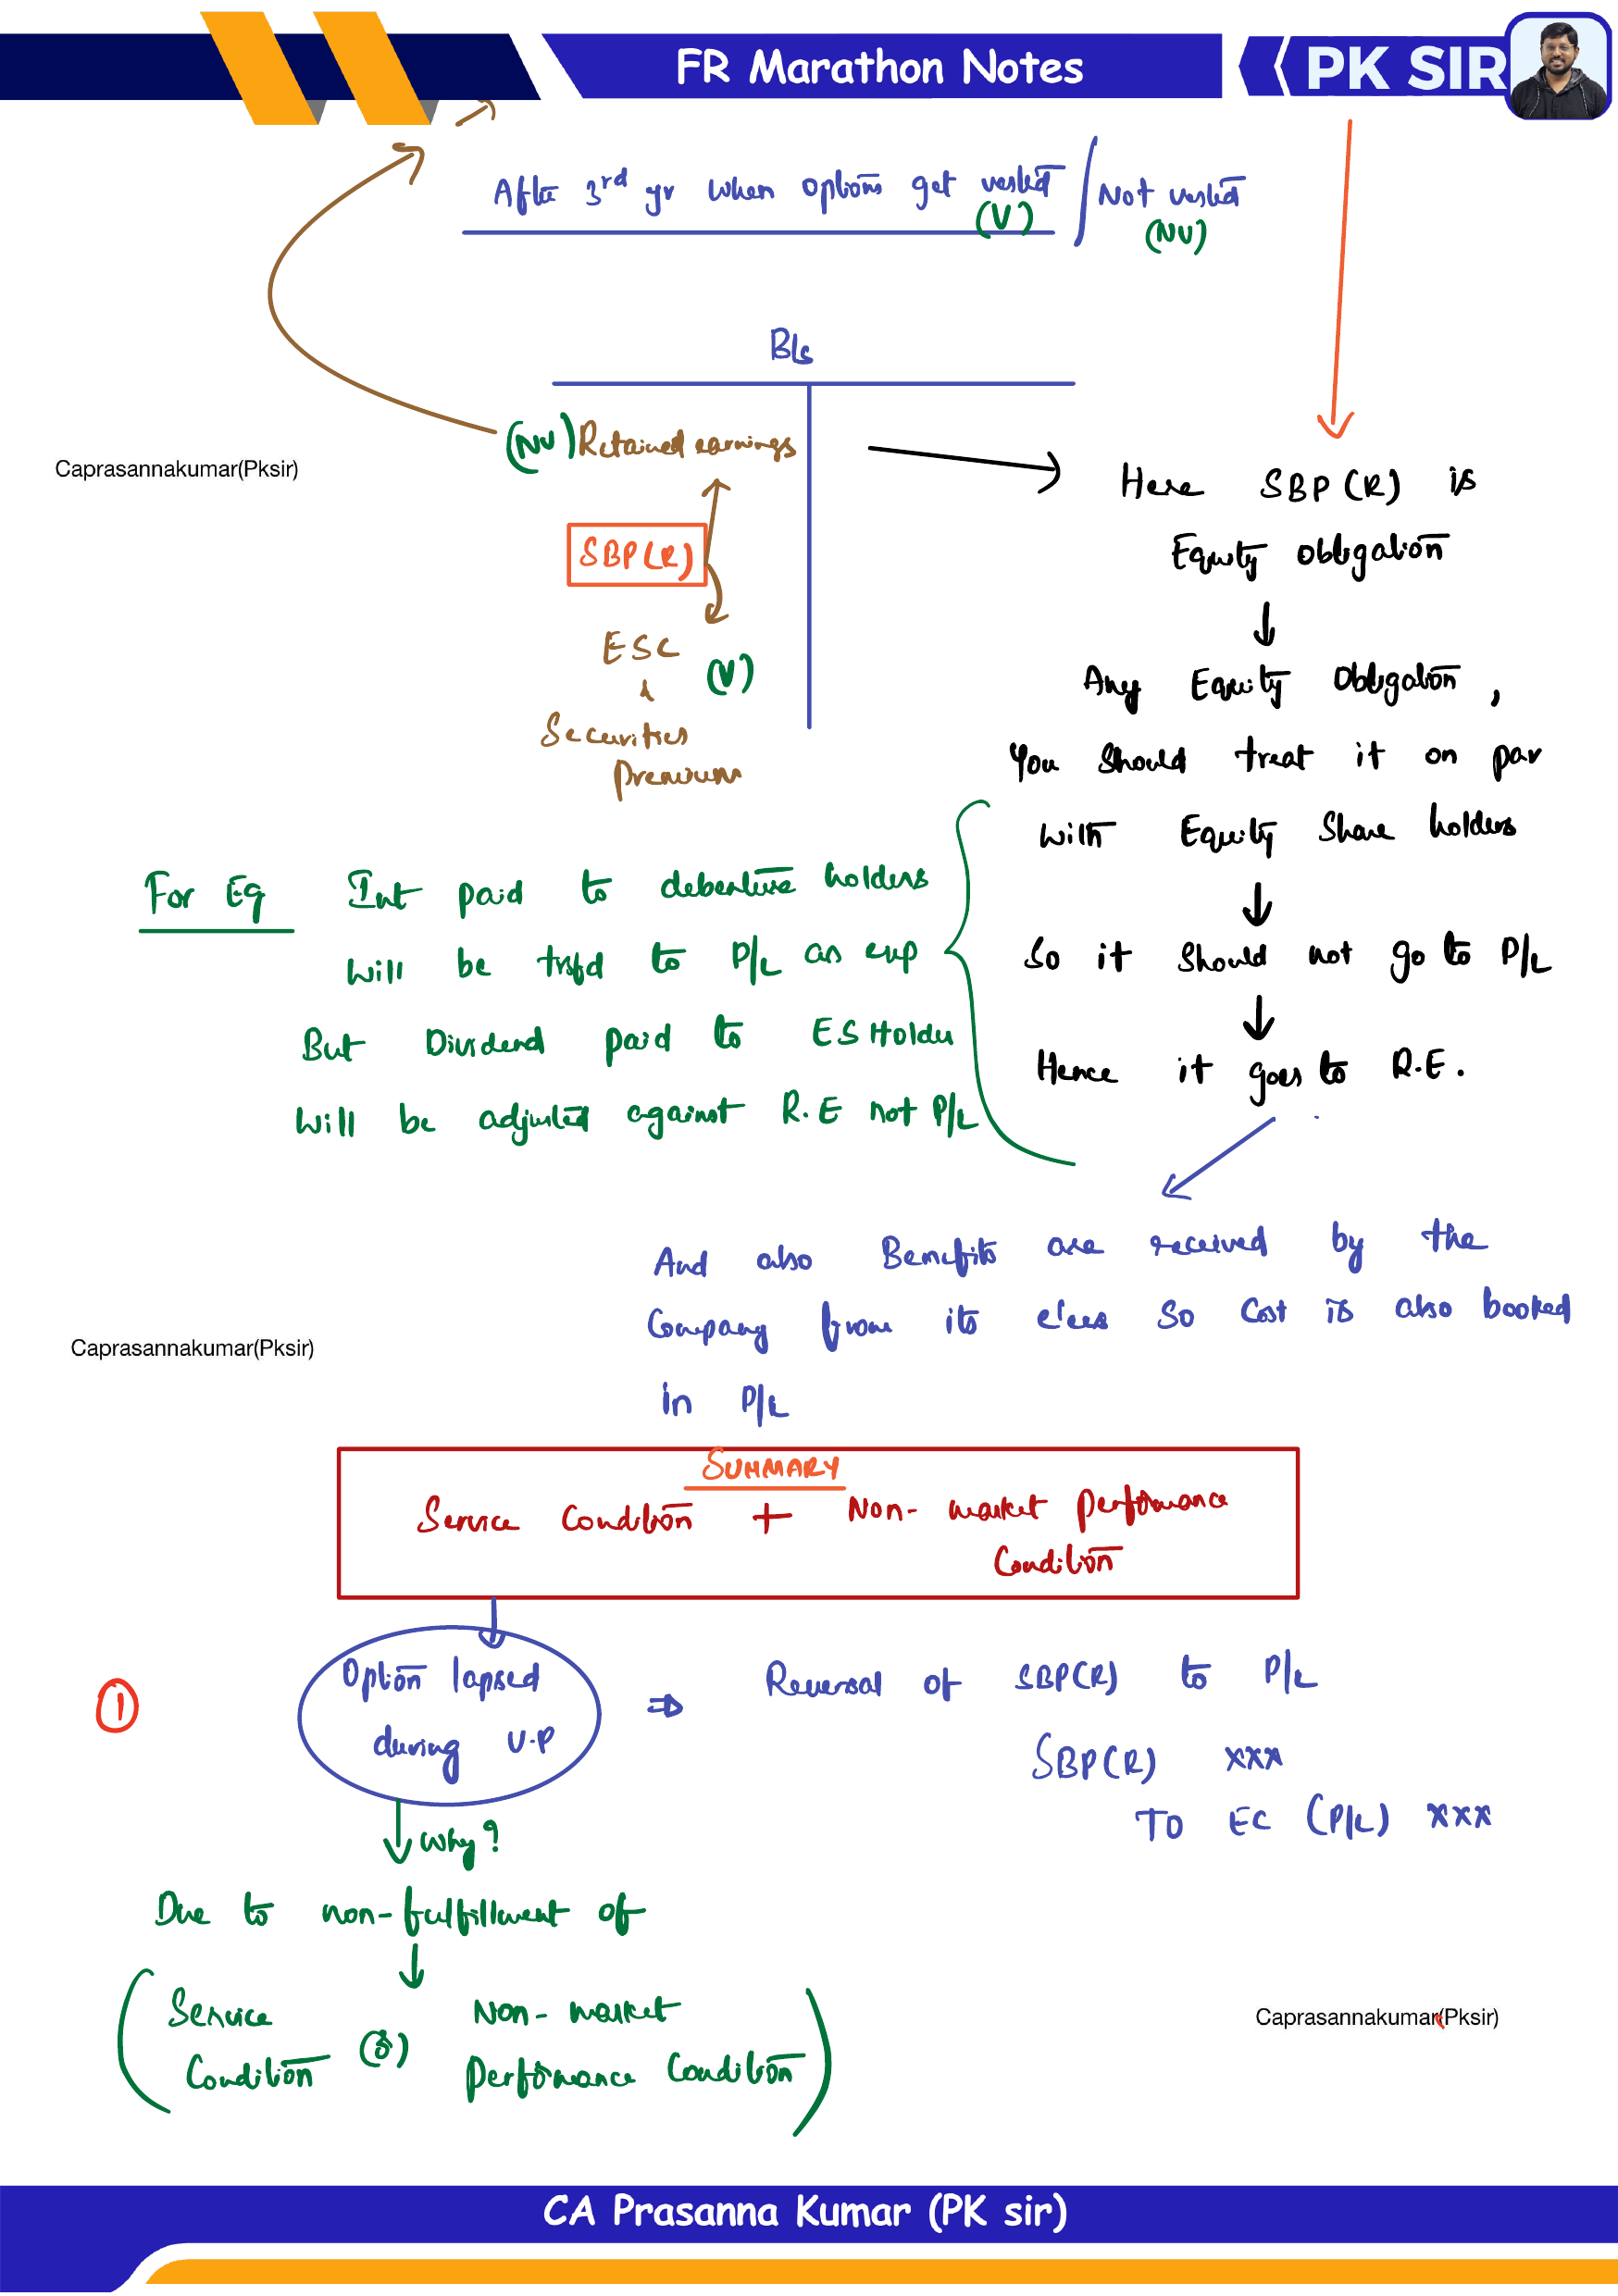 FR Marathon Notes
PK SIR
After 3rd yr when options get vested / Not vested
(V) (NV)
B/s
(NV) Retained earnings
Caprasannakumar(Pksir)
Here SBP(R) is
Equity obligation
SBP(R)
ESC
(V)
&
Securities
Premium
Any Equity Obligation,
You should treat it on par
with Equity Share holders
So it should not go to P/L
Hence it goes to R.E.
For Eg Int paid to debenture holders
will be trsfd to P/L as exp
But Dividend paid to ES Holder
will be adjusted against R.E not P/L
And also Benefits are received by the
Company from its e'ees so cost is also booked
in P/L
Caprasannakumar(Pksir)
SUMMARY
Service Condition + Non-market performance
Condition
1
Option lapsed
during V.P
⇒ Reversal of SBP(R) to P/L
SBP(R) xxx
TO EC (P/L) xxx
Why?
Due to non-fulfillment of
Service
Condition
(or)
Non-market
Performance Condition
Caprasannakumar(Pksir)
CA Prasanna Kumar (PK sir)